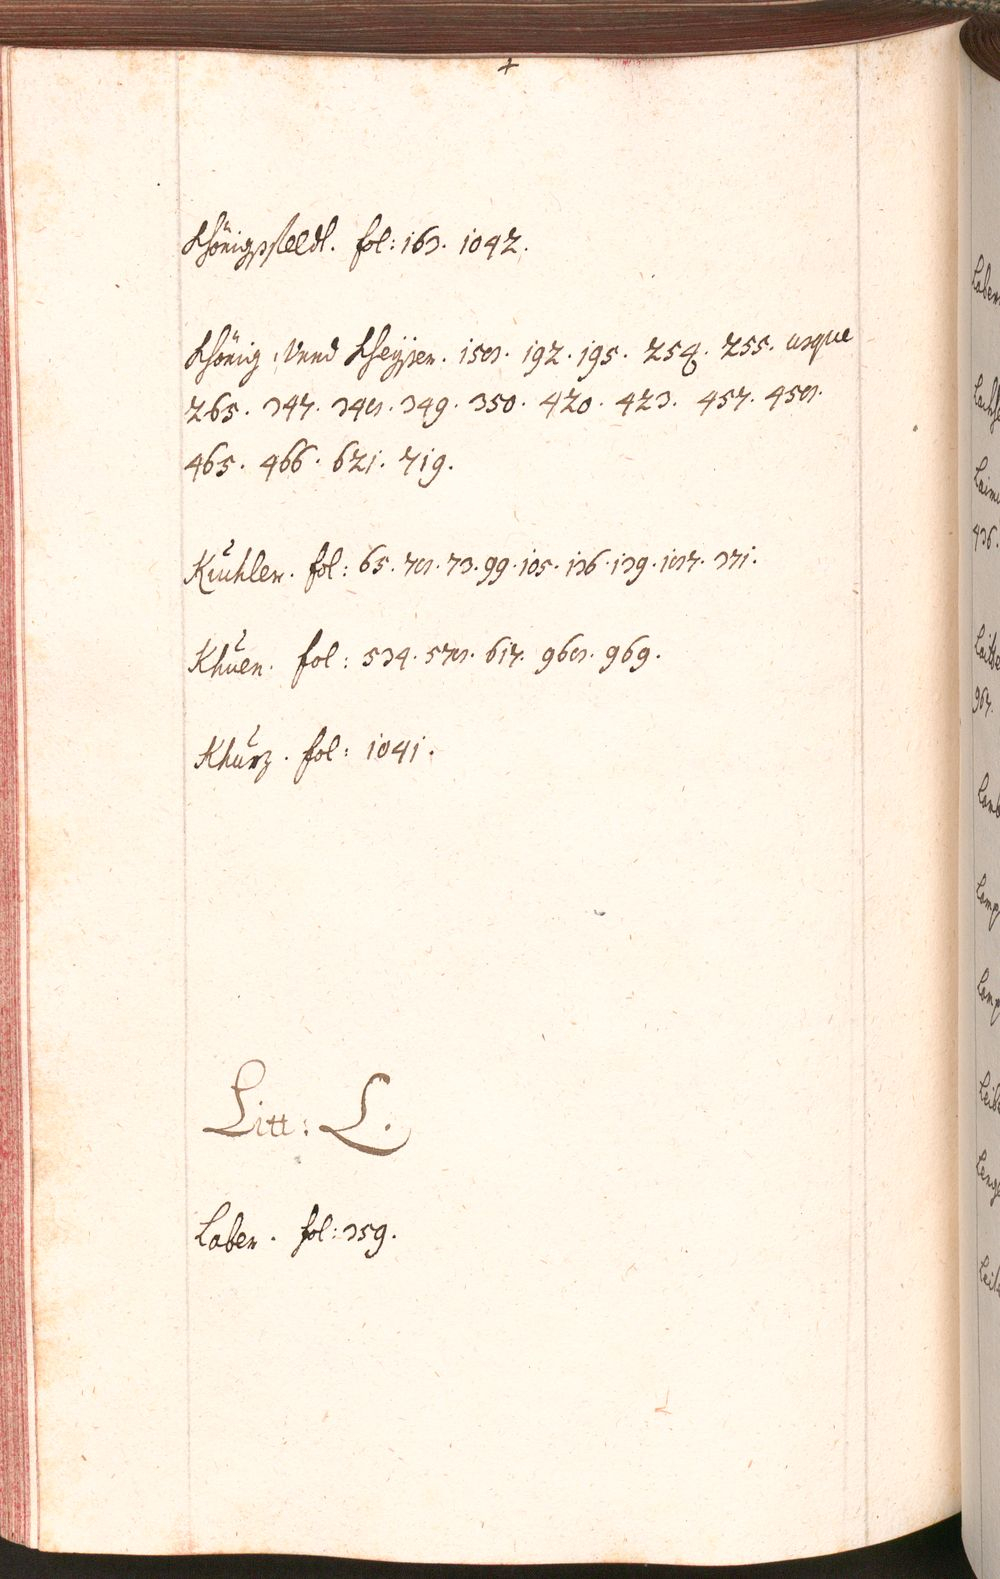 +
Khönigsfeldt. fol: 163. 1042.
Khönig Vnnd Kheÿser. 158. 192. 195. 254. 255. usque
265. 347. 348. 349. 350. 420. 423. 457. 458.
465. 466. 621. 719.
Kúehler. fol: 65. 78. 73. 99. 105. 136. 139. 187. 371.
Khúen. fol: 534. 578. 617. 968. 969.
Khúrz. fol: 1041.
Litt: L.
Laber. fol: 359.